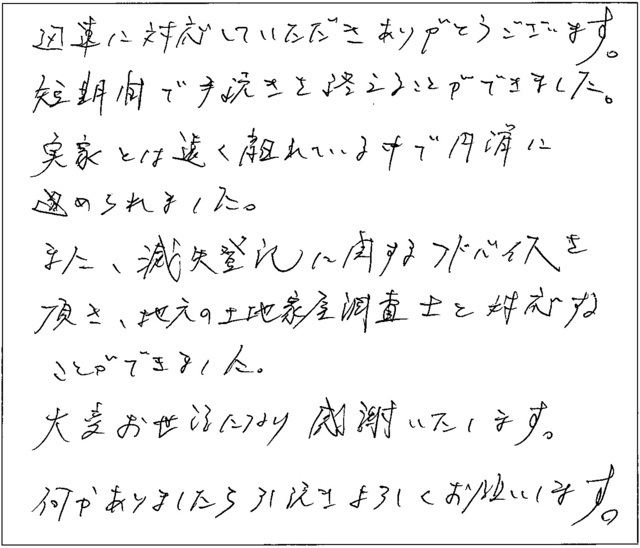 迅速に対応していただきありがとうございます。
短期間で手続きを終えることができました。
実家とは遠く離れている中で円滑に
進められました。
また、滅失登記に関するアドバイスを
頂き、地元の土地家屋調査士と対応する
ことができました。
大変お世話になり感謝いたします。
何かありましたら引続きよろしくお願いします。